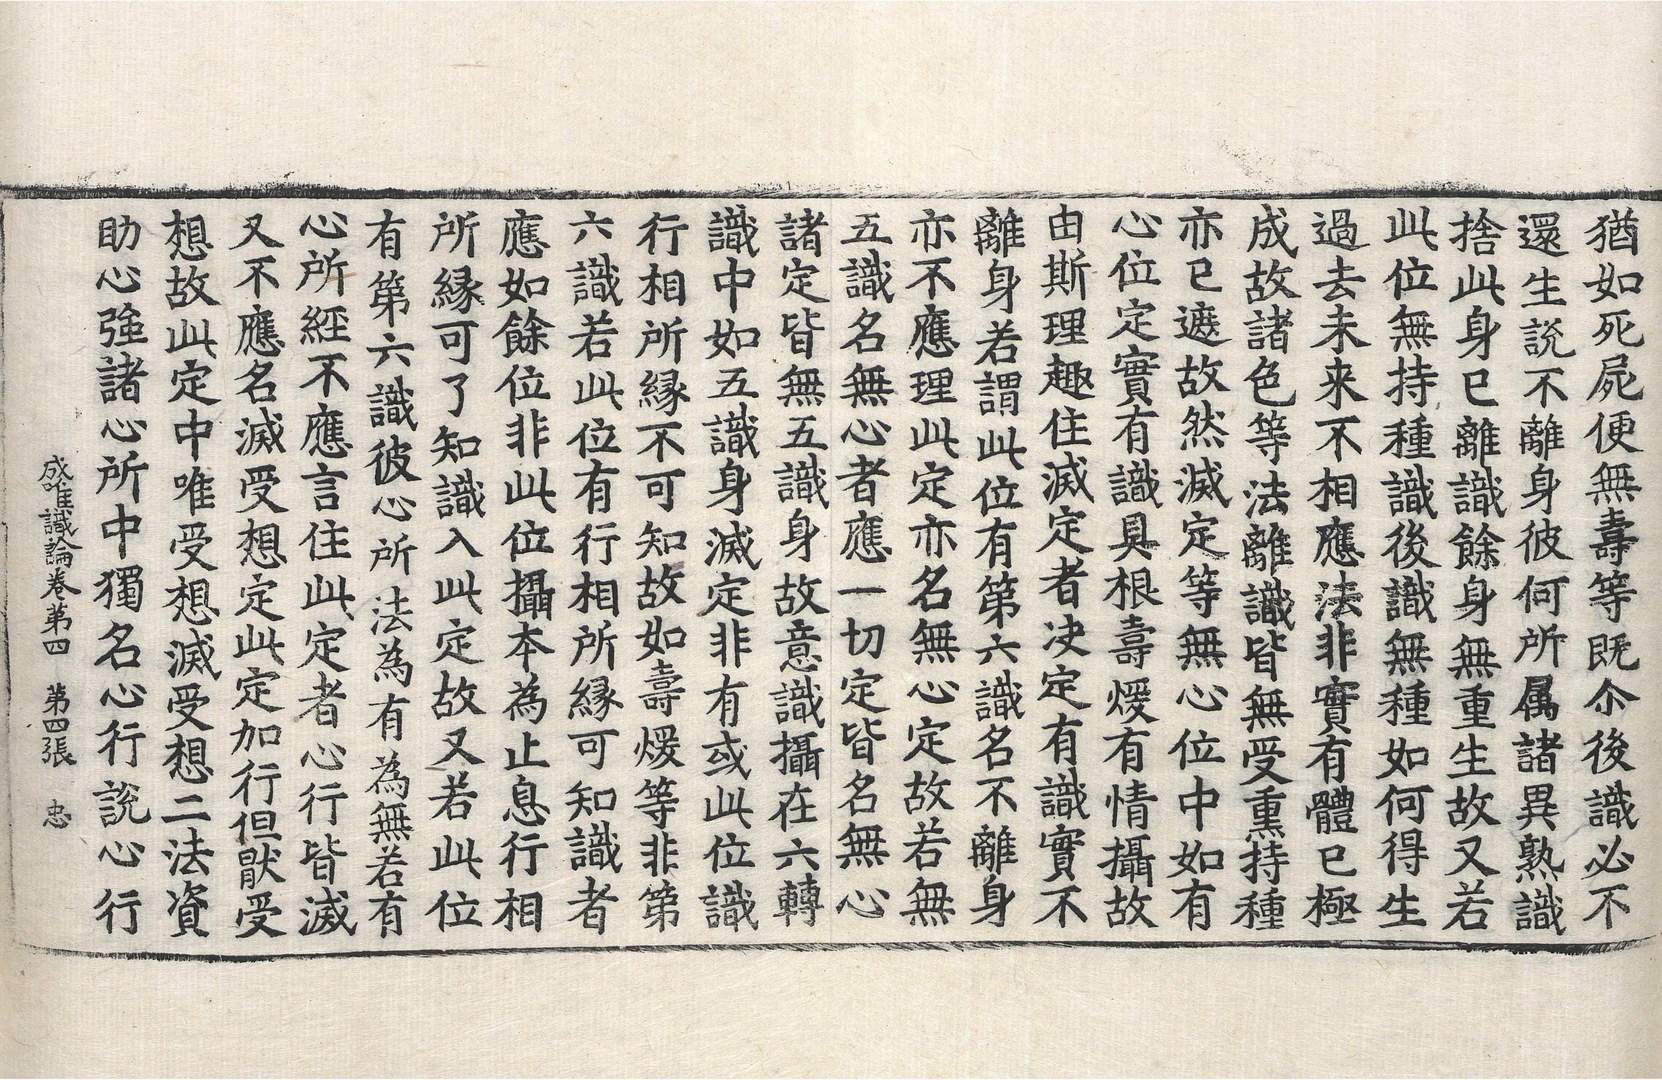 猶如死屍便無壽等既尒後識必不
還生説不離身彼何所属諸異熟識
捨此身已離識餘身無重生故又若
此位無持種識後識無種如何得生
過去未来不相應法非實有體已極
成故諸色等法離識皆無受熏持種
亦已遮故然滅定等無心位中如有
心位定實有識具根壽煖有情攝故
由斯理趣住滅定者决定有識實不
離身若謂此位有第六識名不離身
亦不應理此定亦名無心定故若無
五識名無心者應一切定皆名無心
諸定皆無五識身故意識攝在六轉
識中如五識身滅定非有或此位識
行相所縁不可知故如壽煖等非第
六識若此位有行相所縁可知識者
應如餘位非此位攝本為止息行相
所縁可了知識入此定故又若此位
有第六識彼心所法為有為無若有
心所經不應言住此定者心行皆滅
又不應名滅受想定此定加行但猒受
想故此定中唯受想滅受想二法資
助心強諸心所中獨名心行説心行
成唯識論卷第四　第四張　忠